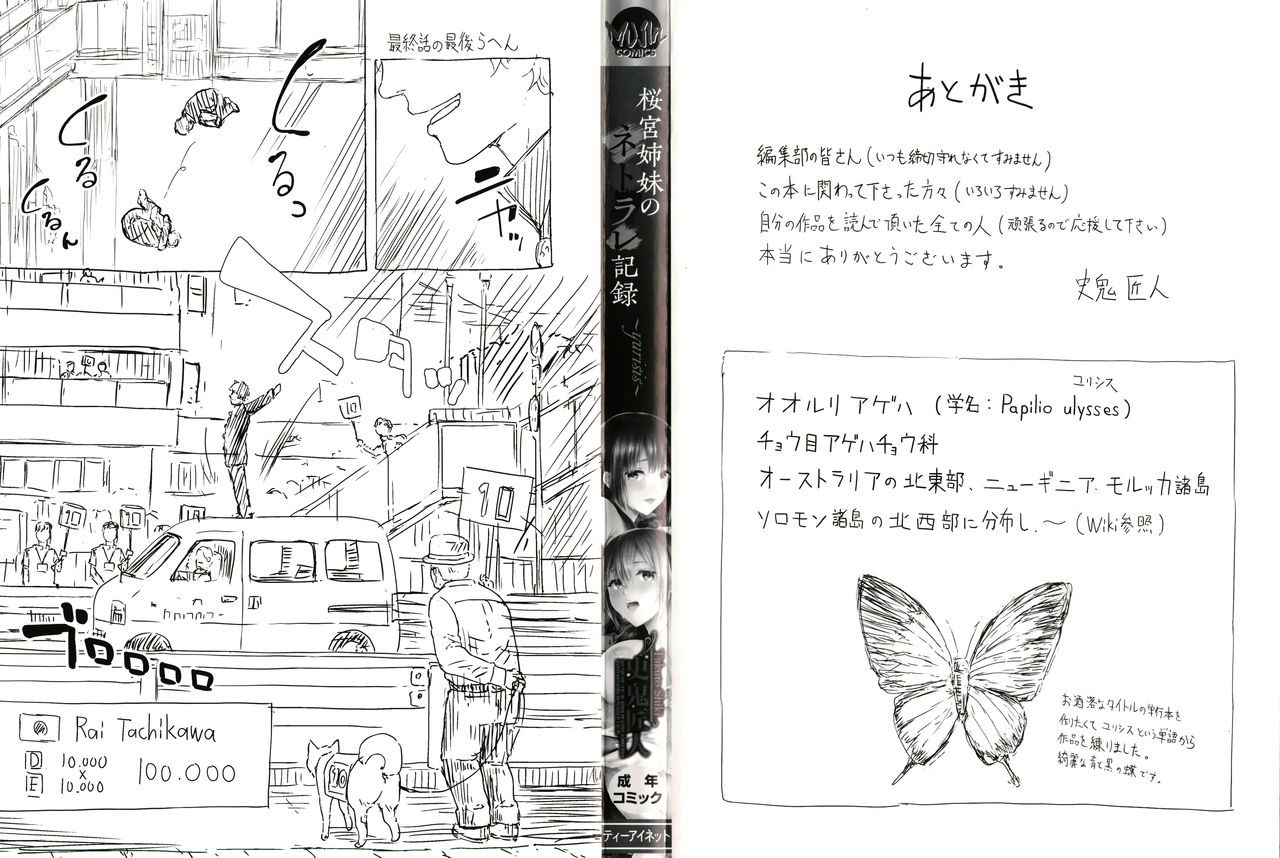 最終話の最後らへん
くるっ
くる
くるん
ニヤッ
10
10
10
10
10
ブロロロロ
Rai Tachikawa
D 10.000
×
E 10.000
100.000
10
COMICS
桜宮姉妹の
ネトラレ記録
~yurisis~
史鬼匠人
成年
コミック
ティーアイネット
あとがき
編集部の皆さん(いつも締切守れなくてすみません)
この本に関わって下さった方々(いろいろすみません)
自分の作品を読んで頂いた全ての人(頑張るので応援して下さい)
本当にありがとうございます。
史鬼 匠人
ユリシス
オオルリアゲハ (学名:Papilio ulysses)
チョウ目アゲハチョウ科
オーストラリアの北東部、ニューギニア、モルッカ諸島
ソロモン諸島の北西部に分布し、~(Wiki参照)
お洒落なタイトルの単行本を
作りたくてユリシスという単語から
作品を練りました。
綺麗な青と黒の蝶です。